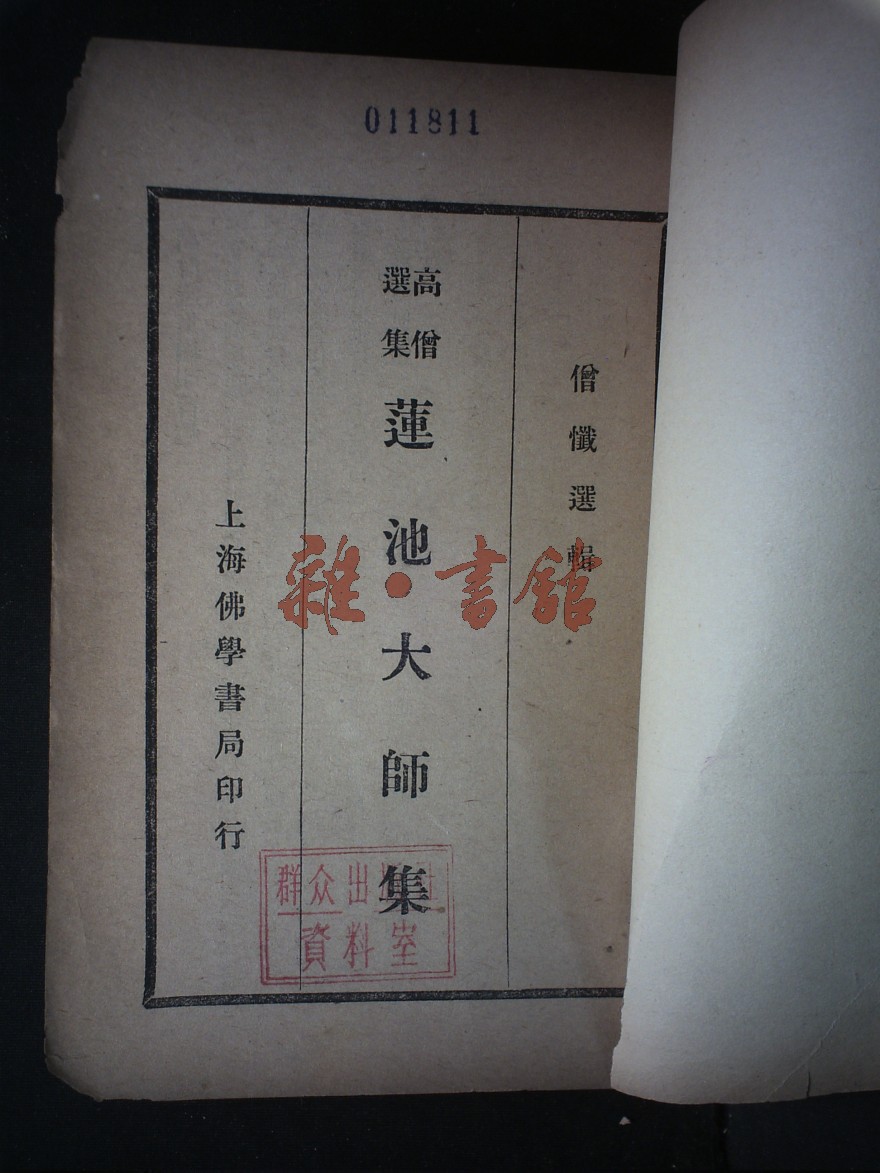 011811
僧懺選輯
高僧
選集
蓮池大師集
上海佛學書局印行
群众出
資料室
雜·書舘